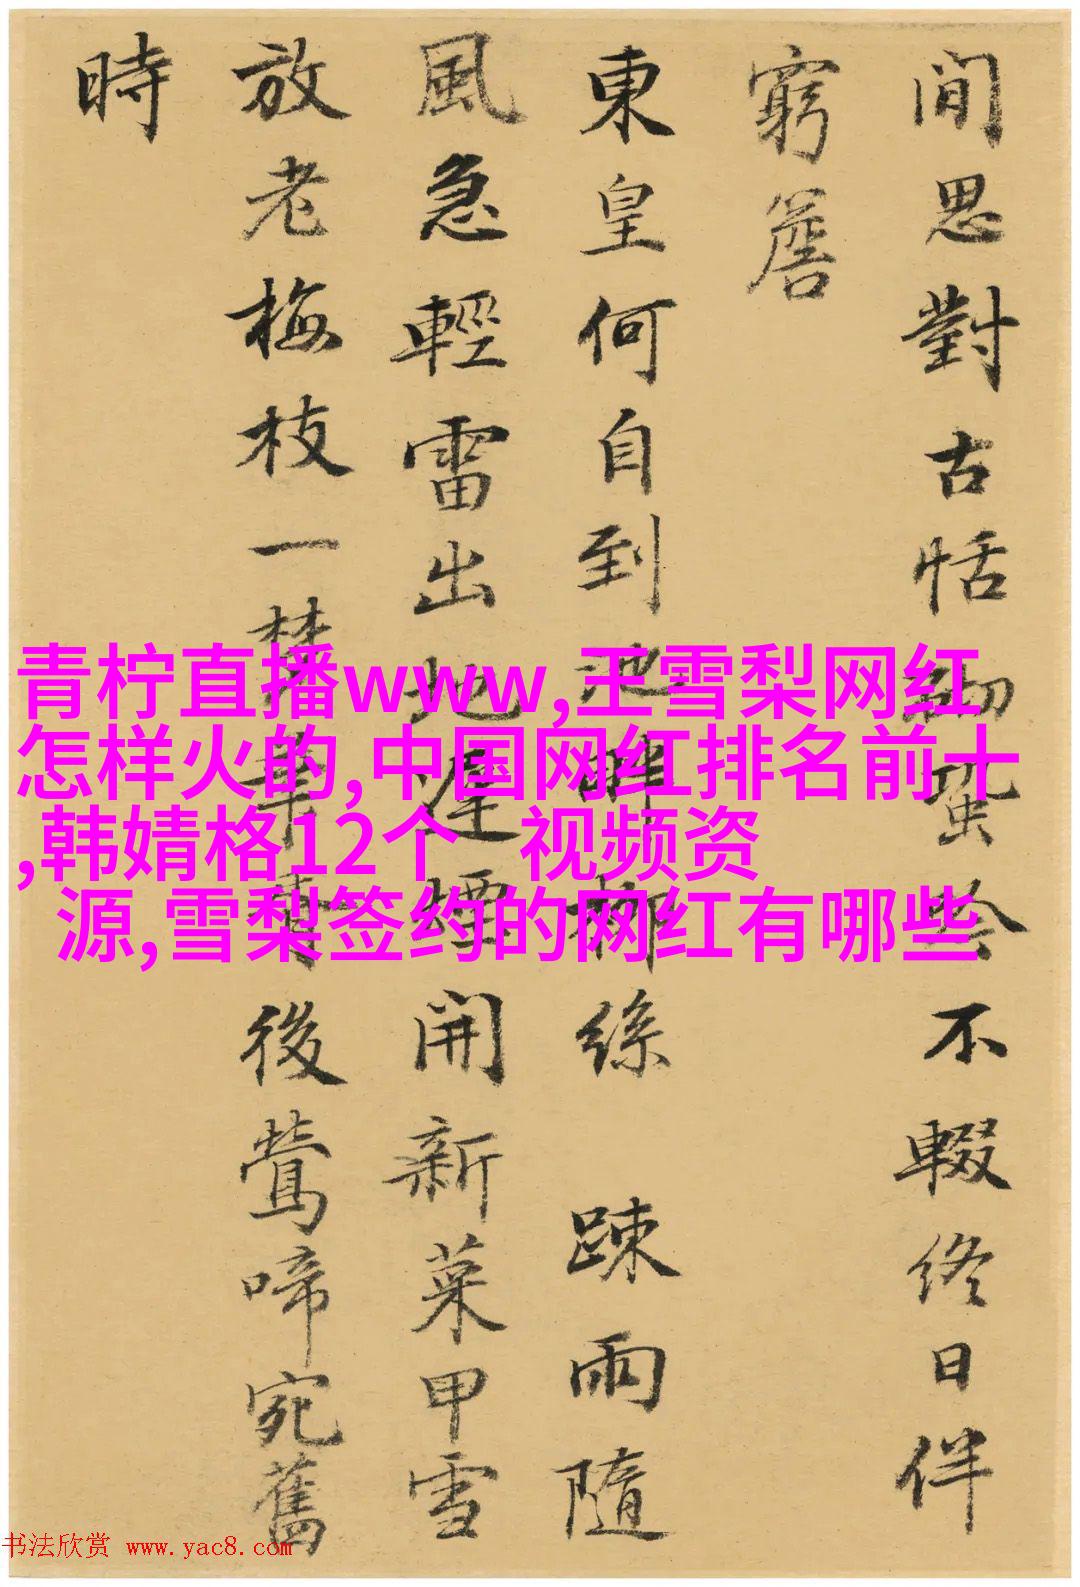 閒思對古恬砌蛩吟不輟終日伴
窮簷
東皇何自到池畔柳絲 踈雨隨
風急輕雷出地遲煙開新菜甲雪
放老梅枝一華胥後鶯啼宛舊
時
青柠直播www,王雪梨网红
怎样火的,中国网红排名前十
,韩婧格12个 视频资
源,雪梨签约的网红有哪些
书法欣赏 www.yac8.com